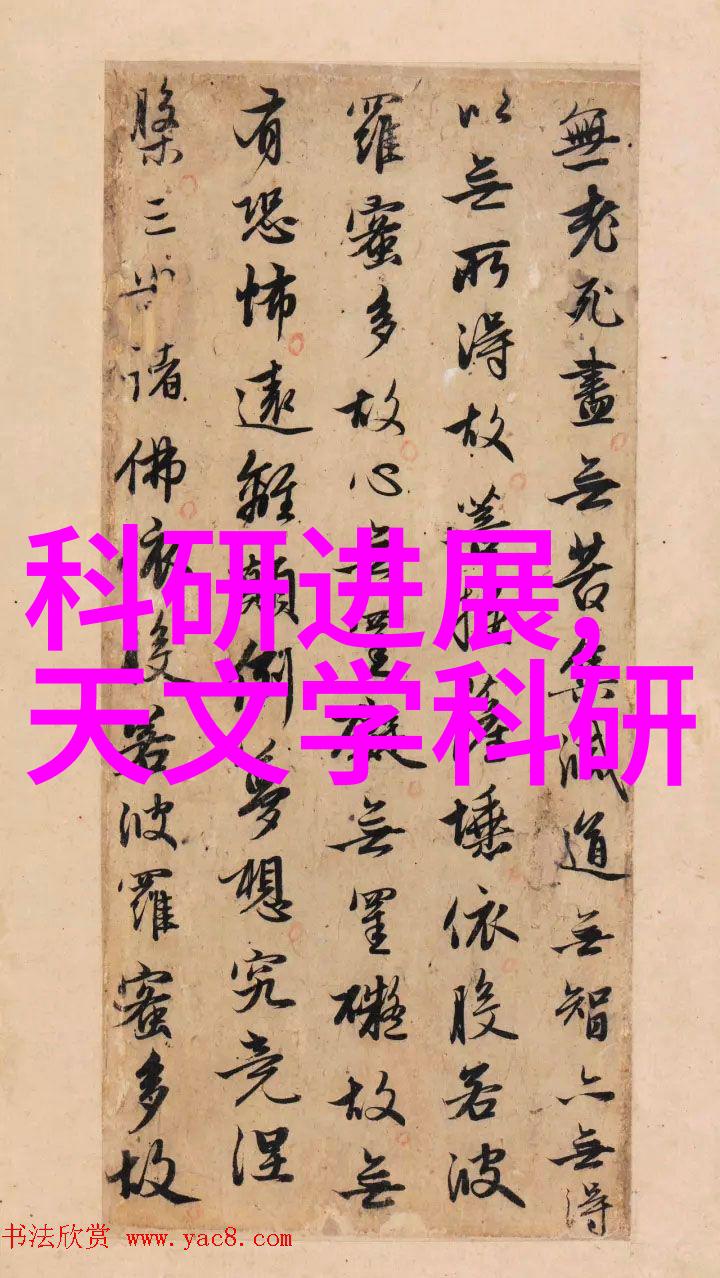 無老死盡無苦集滅道無智亦無得
以無所得故菩提薩埵依般若波
羅蜜多故心無罣礙無罣礙故無
有恐怖遠離顛倒夢想究竟涅
槃三世諸佛依般若波羅蜜多故
科研进展,
天文学科研
书法欣赏 www.yac8.com